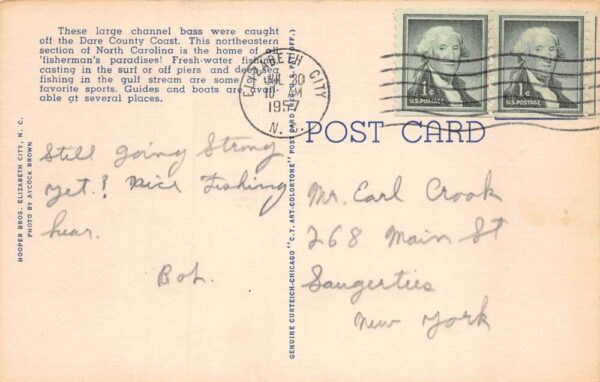 These large channel bass were caught
off the Dare County Coast. This northeastern
section of North Carolina is the home of all
'fisherman's paradises! Fresh-water fishing,
casting in the surf or off piers and deep sea
fishing in the gulf stream are some of the
favorite sports. Guides and boats are avail-
able at several places.
ELIZABETH CITY
JUL 30
10 AM
1957
N. C.
1¢
U.S. POSTAGE
1¢
U.S. POSTAGE
POST CARD
HOOPER BROS. ELIZABETH CITY, N. C.
PHOTO BY AYCOCK BROWN
GENUINE CURTEICH-CHICAGO "C.T. ART-COLORTONE" POST CARD (REG. U.S. PAT. OFF.)
Still going Strong
yet? Nice Fishing
hear.
Bob.
Mr. Earl Crook
268 Main St
Saugerties
New York